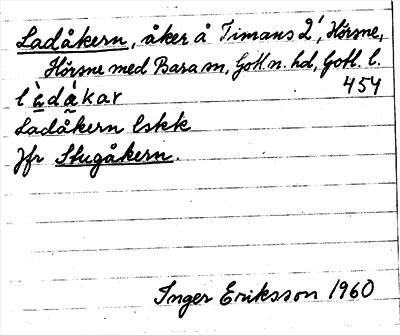 Ladåkern, åker å Timans 2', Hörsne,
Hörsne med Bara sn, Gotl. n. hd, Gotl. l.
454
làdàkar
Ladåkern lskk
Jfr Stugåkern.
Inger Eriksson 1960